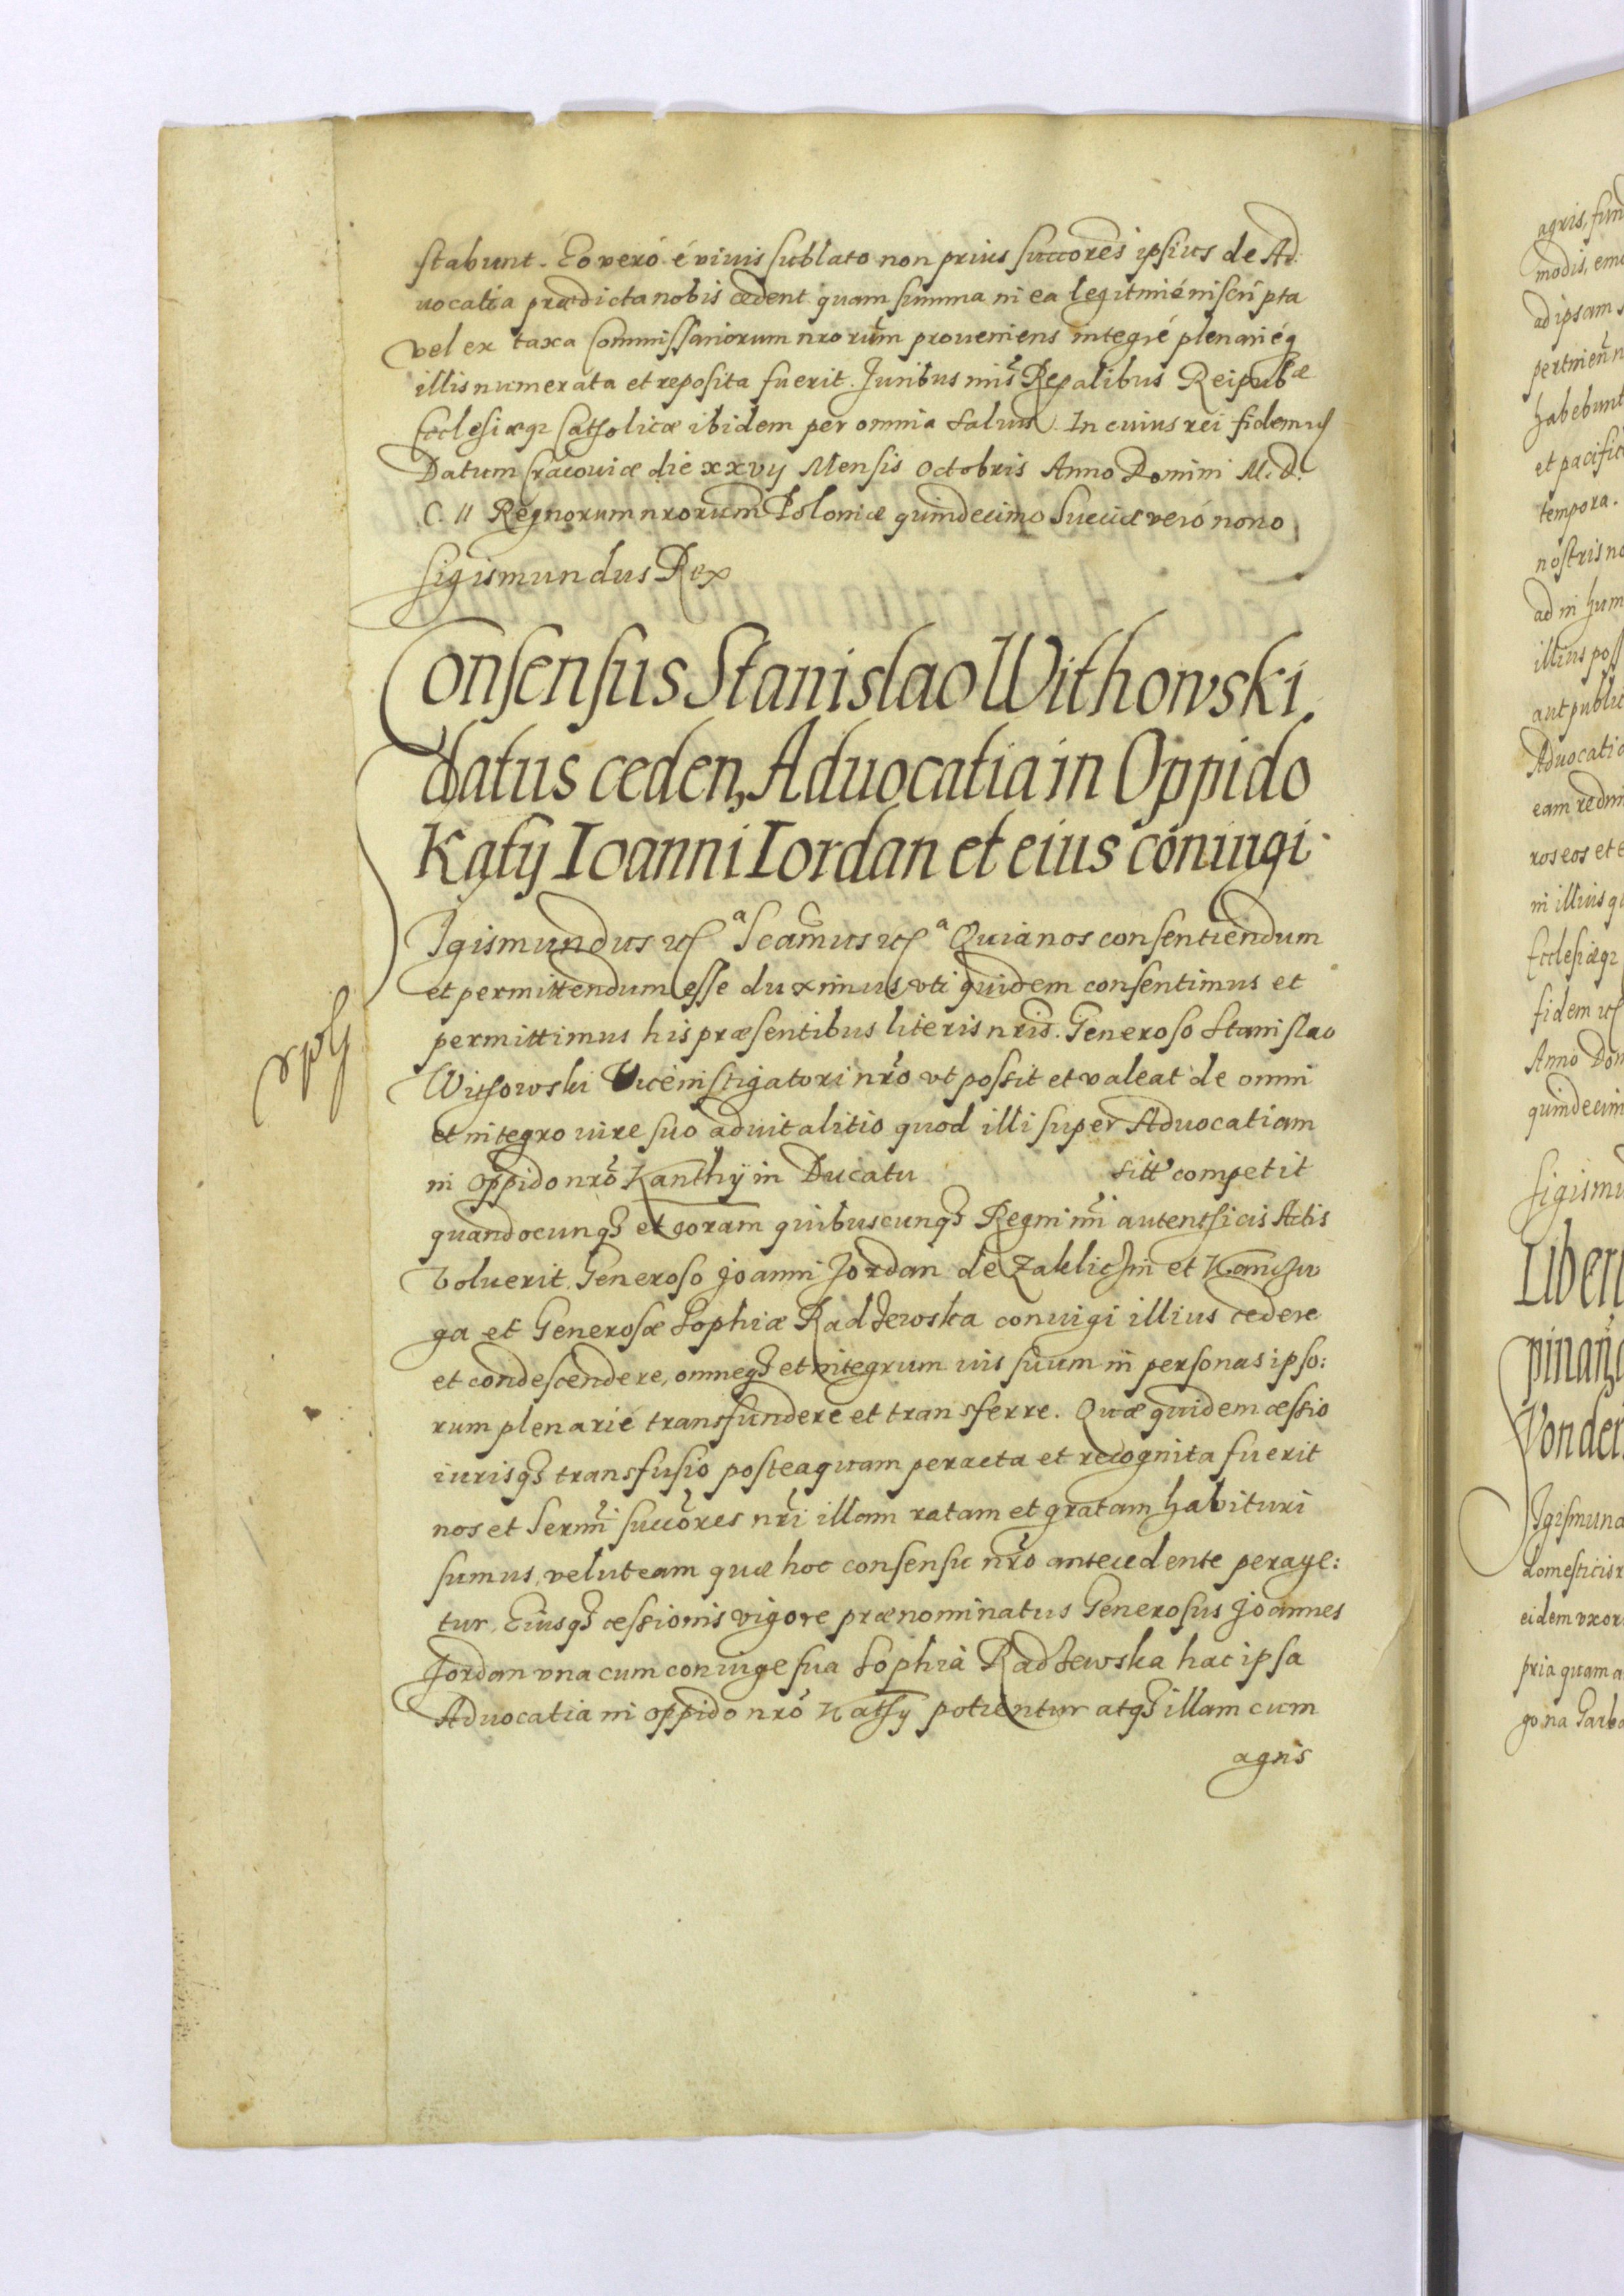 stabunt. Eo vero é viuis sublato non prius succores ipsius de Ad
uocatia prædicta nobis cedent quam summa in ea legitimé inscripta
vel ex taxa Commissariorum nrorum proueniens integré plenariéq
illis numerata et reposita fuerit. Juribus nris Regalibus Reipubæ
Ecclesiæq Catholicæ ibidem per omnia saluis. In cuius rei fidem
Datum Cracouiæ die xxvij Mensis Octobris Anno Domini M. D.
C. II Regnorum nrorum Poloniæ quindecimo Sueciæ veró nono
Sigismundus Rex
Consensus Stanislao Withowski
datus ceden, Aduocatia in Oppido
Kąty Ioanni Iordan et eius coniugi
Sigismundus Scamus Quia nos consentiendum
et permittendum esse duximus, vti quidem consentimus et
permittimus his præsentibus literis nris. Generoso Stanislao
Withowski Viceinstigatori nro vt possit et valeat de omni
et integro iure suo aduitalitio quod illi super Aduocatiam
in oppido nro Kanthÿ in Ducatu sitt competit
quandocunq et coram quibuscunq Regni nri autenthicis Actis
voluerit. Generoso Joanni Jordan de Zakliczin et
ga et Generosæ Sophiæ Radzewska coniugi illius cedere
et condescendere, omneq et integrum ius suum in personas ipso:
rum plenarié transfundere et transferre. Quæ quidem cessio
iurisq transfusio posteaquam peracta et recognita fuerit
nos et Sermi succores nri illam ratam et gratam habituri
sumus, velut eam quæ hoc consensu nro antecedente perage:
tur. Eiusq cessionis vigore prænominatus Generosus Joannes
Jordan vna cum coniuge sua Sophia Radzewska hac ipsa
Aduocatia in oppido nro Kathy potientur atq illam cum
agris